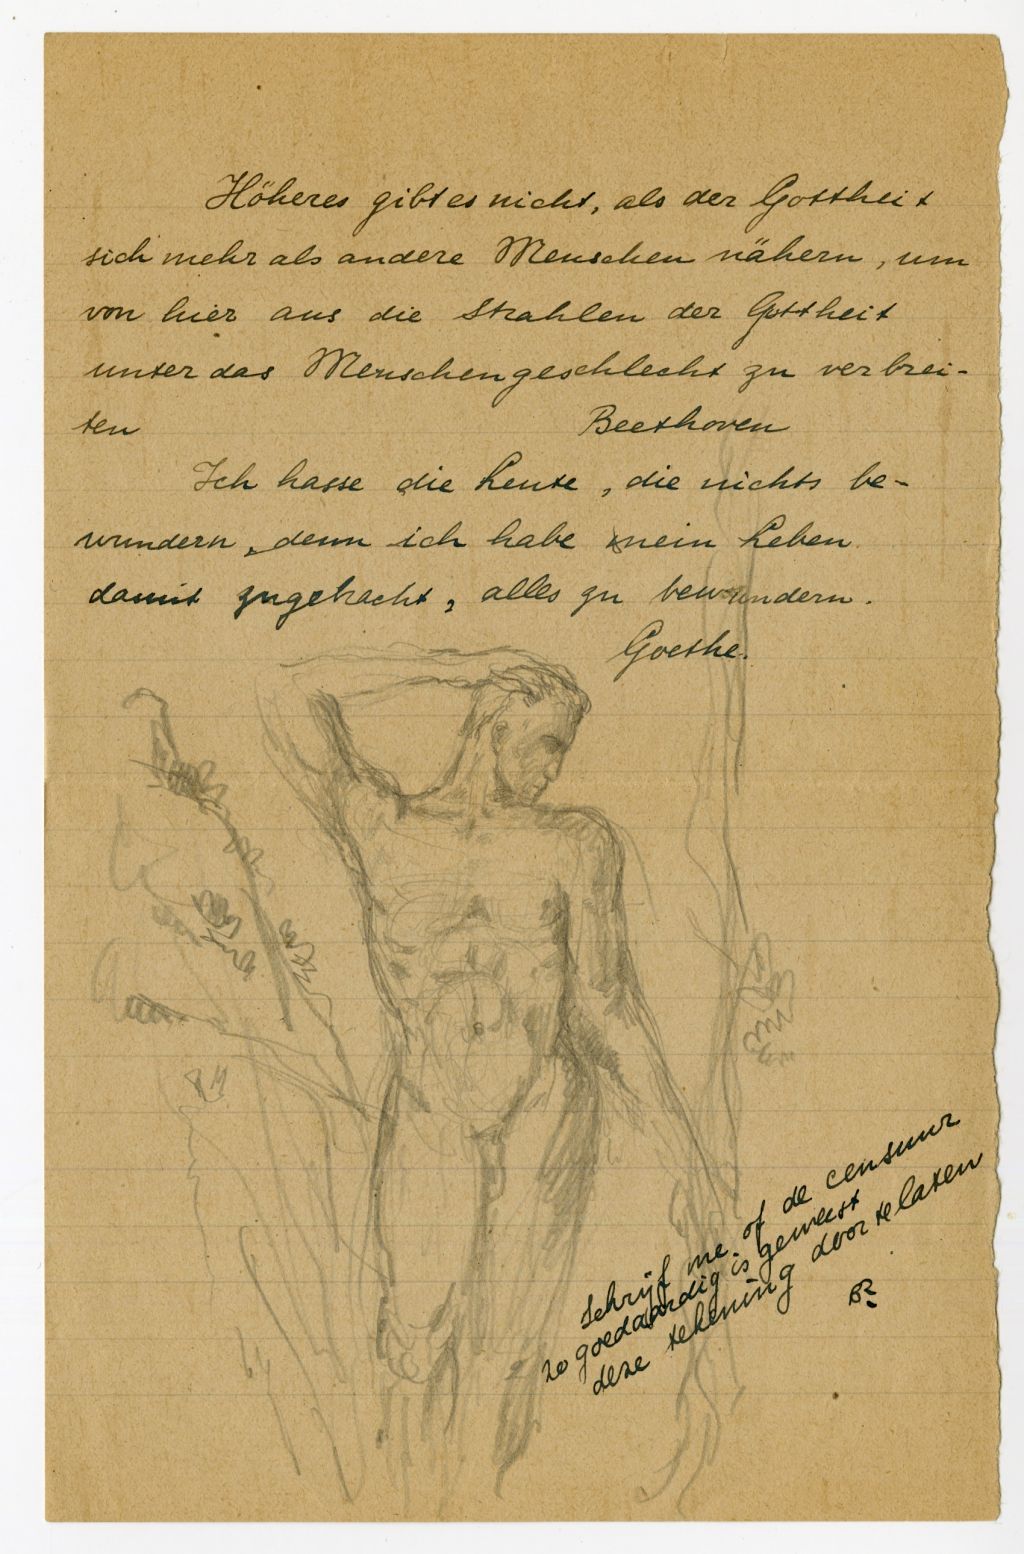 Höheres gibt es nicht, als der Gottheit
sich mehr als andere Menschen nähern, um
von hier aus die Strahlen der Gottheit
unter das Menschengeschlecht zu verbrei-
ten Beethoven
Ich hasse die Leute, die nichts be-
wundern, denn ich habe mein Leben
damit zugebracht, alles zu bewundern.
Goethe.
Schrijf me of de censuur
zo goedaardig is geweest
deze tekening door te laten
BR